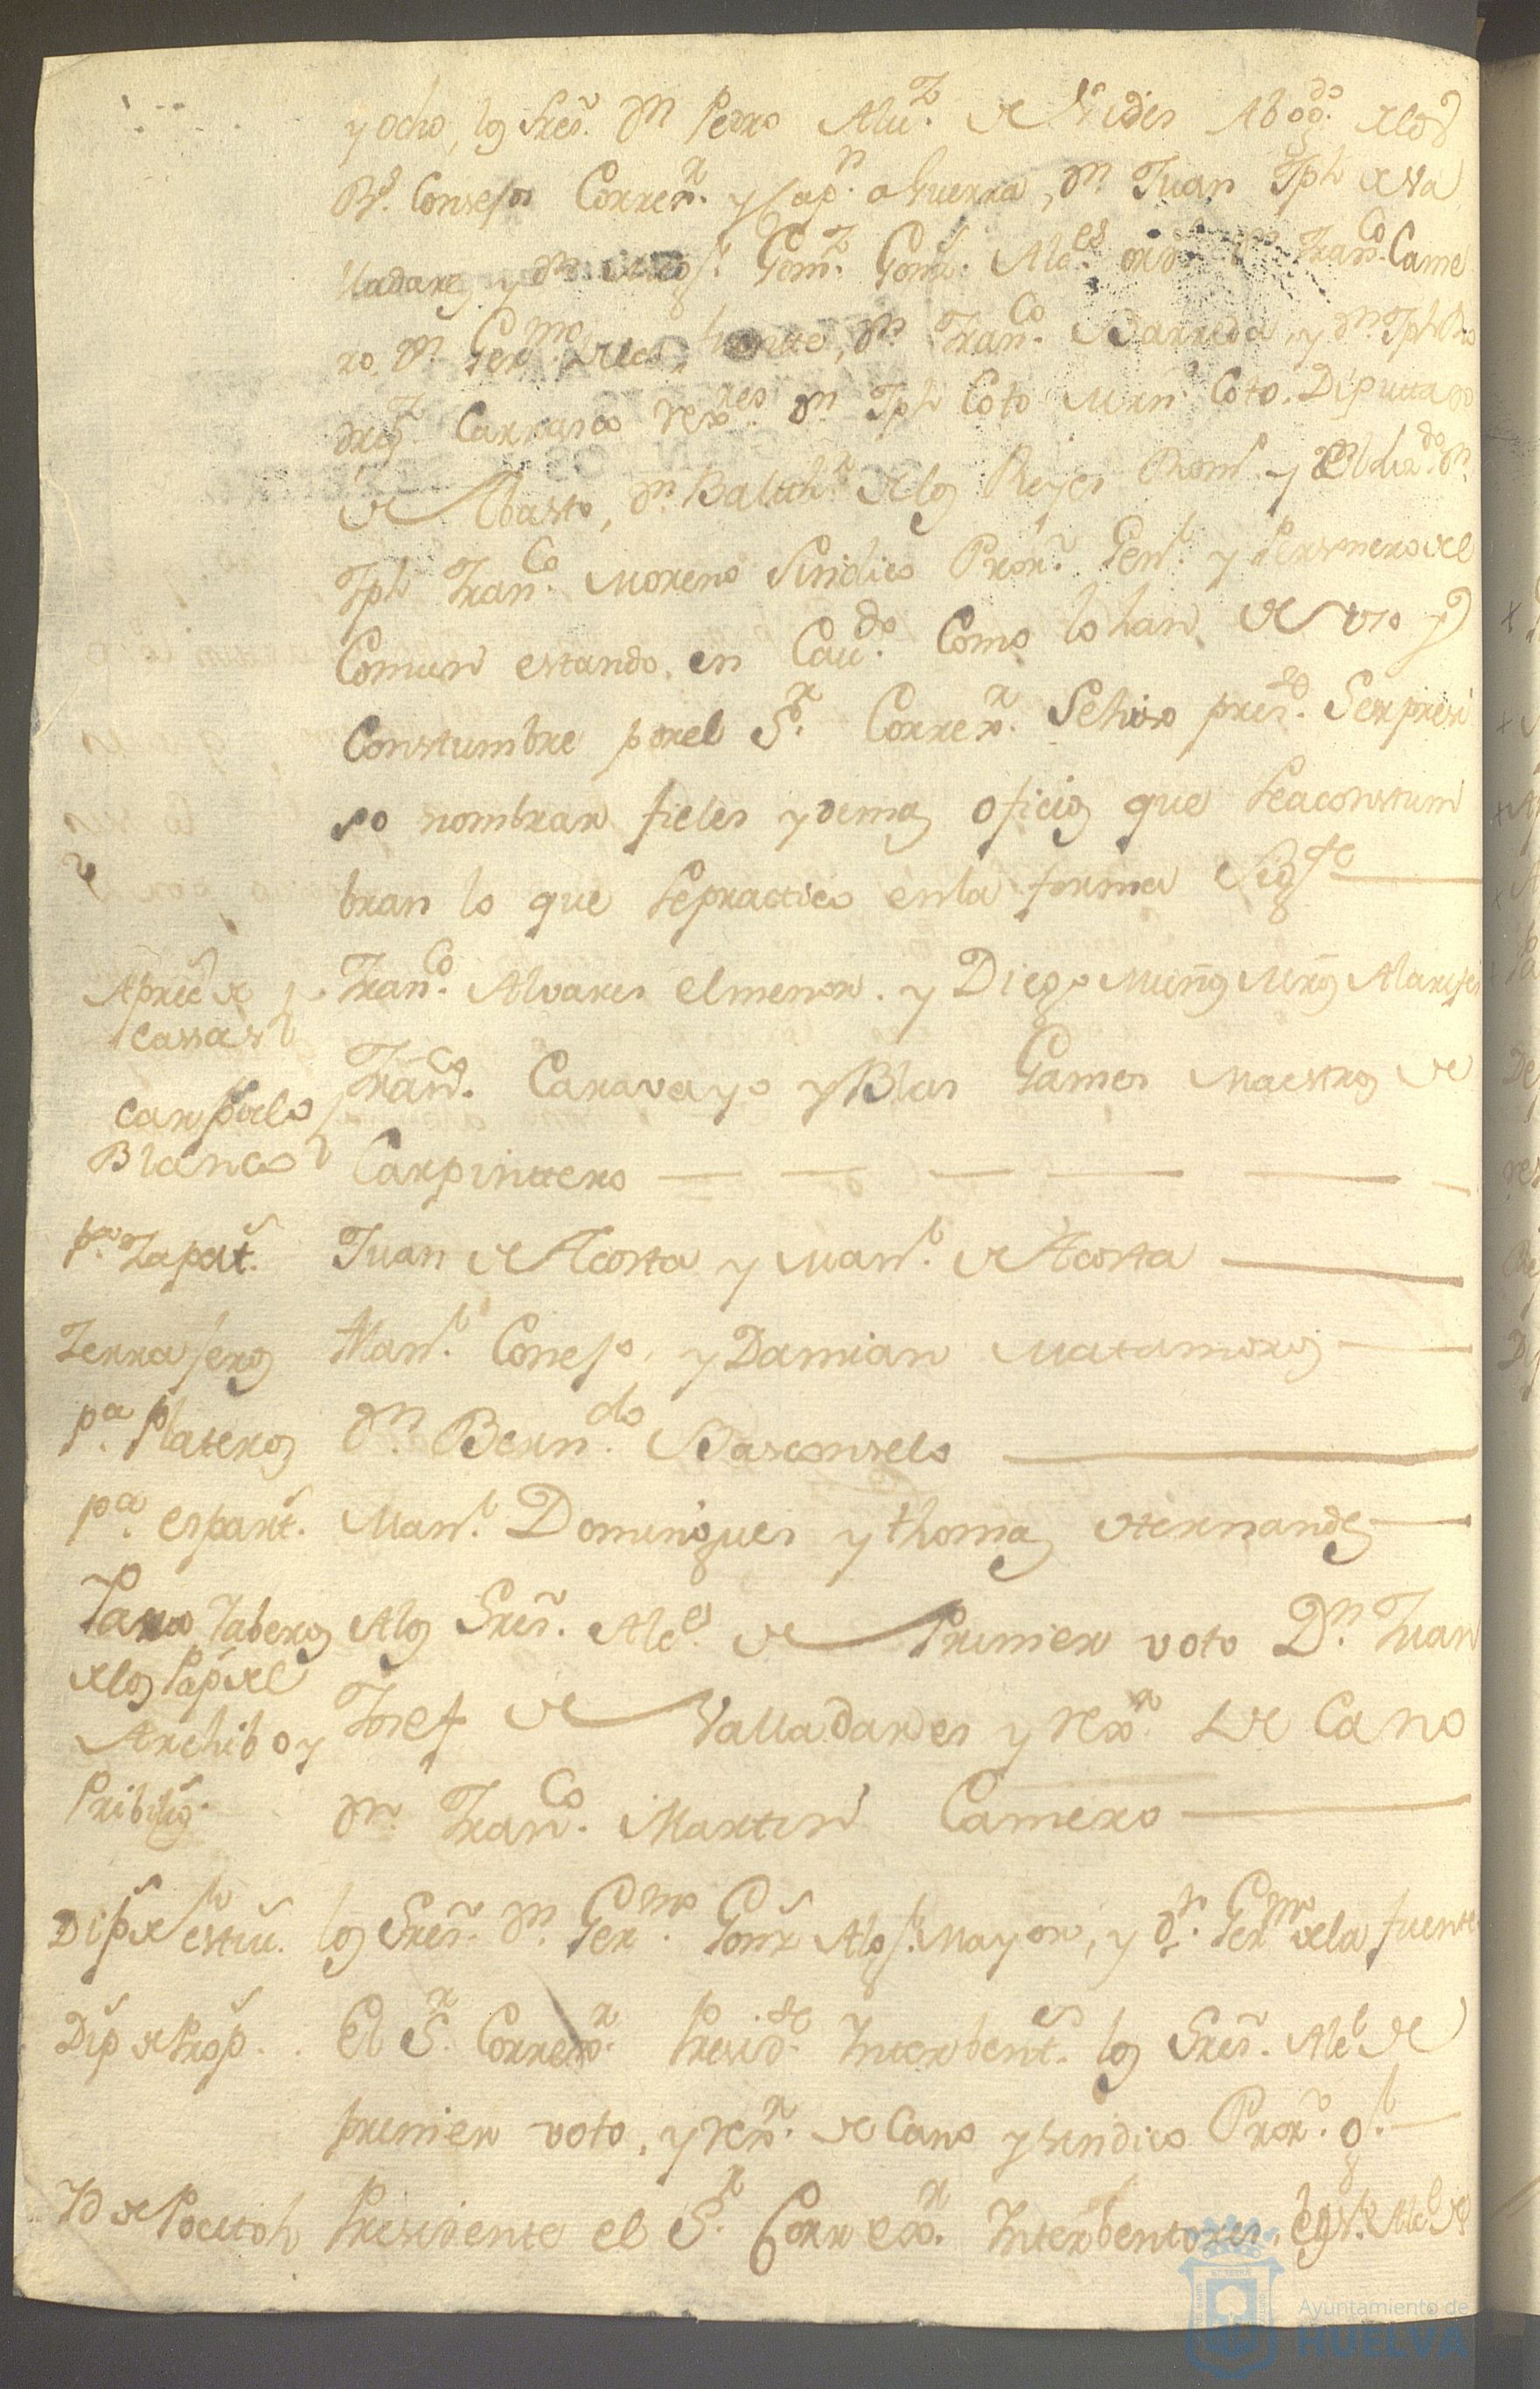 y ocho, los Sres. Dn Pedro Alvz. de Vides Abogdo. de los
Rs. Consejos Correxr. y Capn. a Guerra, Dn. Juan Jph de Va
lladares y Dn. Gomz. Alces. Dn. Franco. Came
ro, Dn. Germo. de la fuente, Dn. Franco. Barreda, y Dn. Jph Ro
drigz Carrasco rexres Dn. Jph Coto Mrn Coto. Diputtado
de Abasto, Dn. Balthr de los Reyes Dn.
Jph Franco. Moreno Sindico Pror. Genl. y Personero del
Comun estando, en Cavdo. Como lo han de uso y
Constumbre por el Sr. Correxr. Se hizo preste. Ser presi
so nombrar fieles y demas oficios que Seaconstum
bran lo que Sepractico en la forma Sigte
Aprec de
cassas
Franco. Alvares el menor. y Diego Muñoz Mrnz Alarifes
carp de lo
Blanco
Franco. Caravayo y Blas Games Maestros de
Carpinttero
pa. Zapat.
Juan de Acosta y Manl. de Acosta
Zerrajeros
Manl. Conejo, y Damian Matamoros
pa. Plateros
Dn. Berndo. Basconselo
pa. espart.
Manl. Domingues y thomas Hernandes
Para Llaberos
de los Pap del
Archibo y
Pribileg.
Alos Sres. Alces. de Primer voto Dn. Juan
Josef de Valladares y rexr. De Cano
Dn. Franco. Martin Camero
Dip de
los Sres. Dn. Germo. Gonz Algl. Mayor, y Dn. Germo de la fuente
Dip de Prop.
El Sr. Correxr. Presidte. Interbent. los Sres. Alcl de
primer voto, y rexr. de Cano y sindico Pror. gl.
Yd de Pocitoh
Presidente el Sr. Correxr. Interbentores, Alcl de
Ayuntamiento de
HUELVA